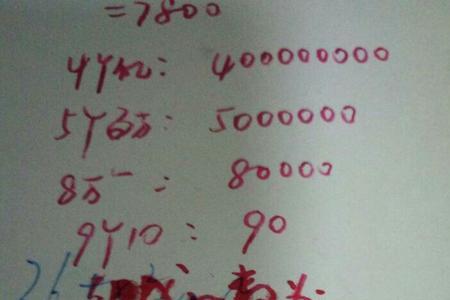 =7800
4个亿: 400000000
5个百万: 5000000
8万一: 80000
9个10: 90